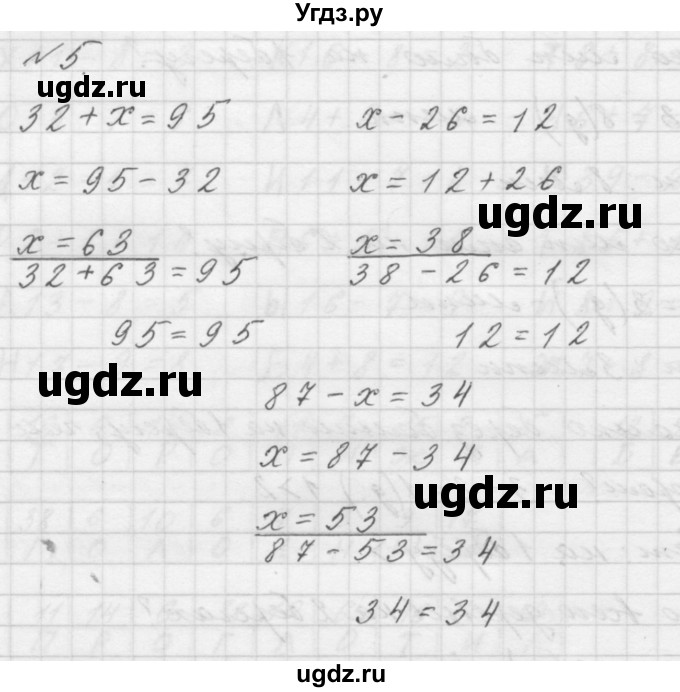 Угдз.ру
№5
ugdz.ru
32 + x = 95
x - 26 = 12
x = 95 - 32
x = 12 + 26
ugdz.ru
x = 63
x = 38
32 + 63 = 95
38 - 26 = 12
95 = 95
12 = 12
ugdz.ru
87 - x = 34
x = 87 - 34
ugdz.ru
x = 53
87 - 53 = 34
34 = 34
ugdz.ru